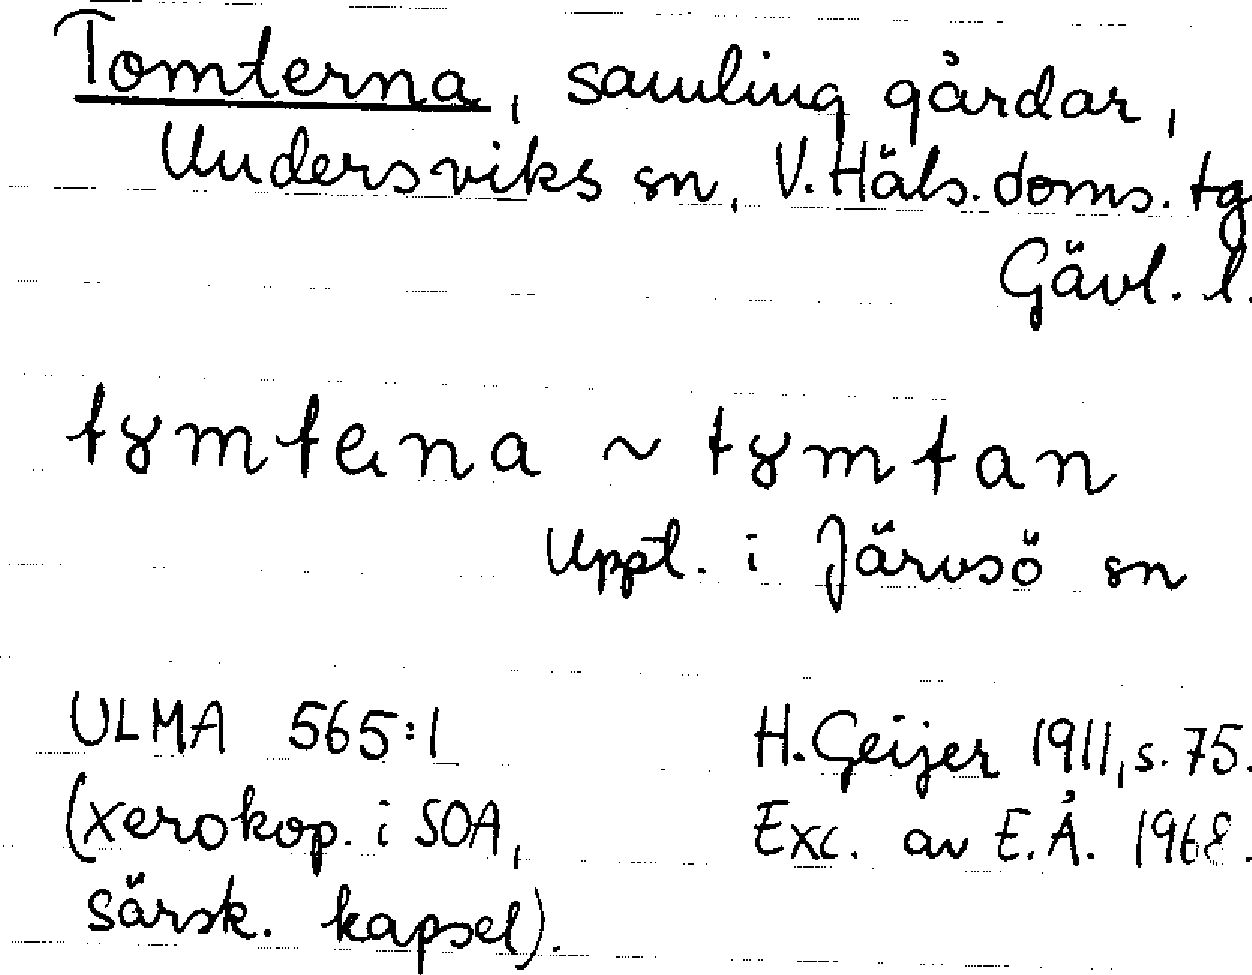 Tomterna, samling gårdar,
Undersviks sn, V. Häls. doms. tg
Gävl. l.
tymtena ~ tymtan
Uppt. i Järvsö sn
ULMA 565:1 H. Geijer 1911, s. 75.
(xerokop. i SOA, Exc. av E. Å. 1968.
särsk. kapsel).